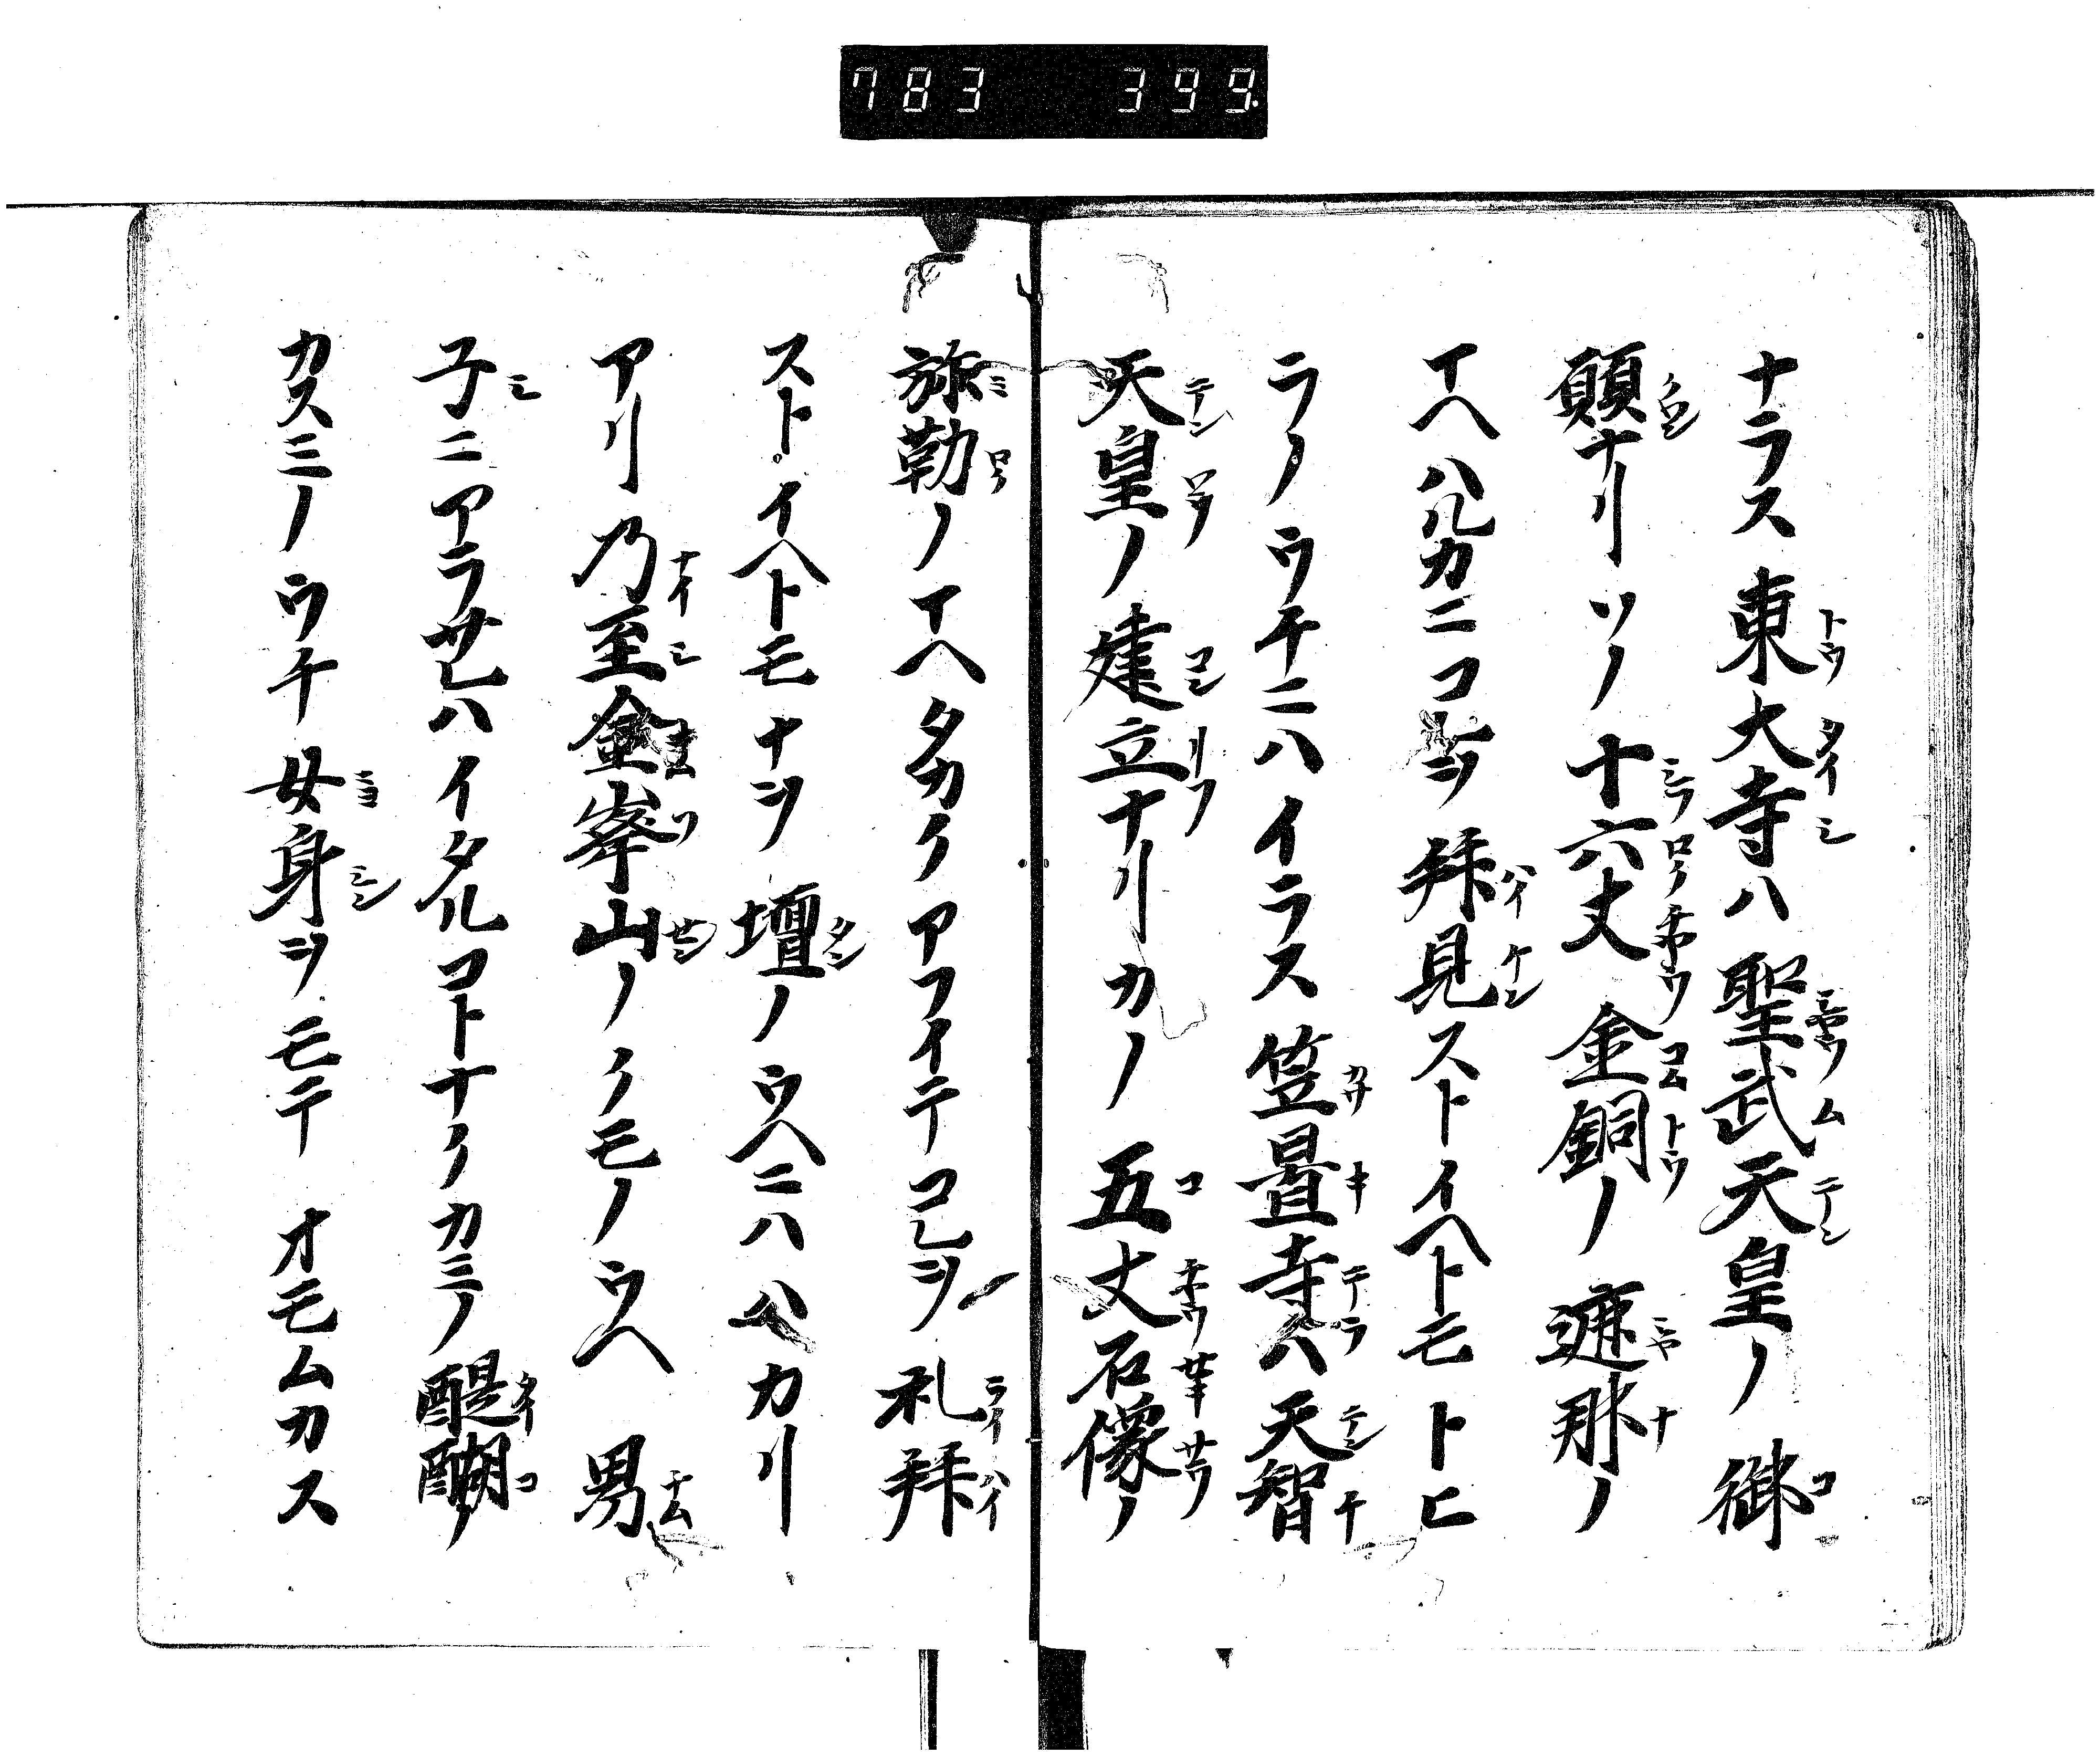 783 399
ナラス東大寺ハ聖武天皇ノ御
願ナリソノ十六丈金銅ノ遮那ノ
イヘハルカニコレヲ拜見ストイヘトモトヒ
ラノウチニハイラス笠置寺ハ天智
天皇ノ建立ナリカノ五丈石像ノ
弥勒ノイヘタカクアフイテコレヲ礼拜
ストイヘトモナヲ壇ノウヘニハハヽカリ
アリ乃至金峯山ノクモノウヘ男
子ニアラサレハイタルコトナクカミノ醍醐ノ
カスミノウチ女身ヲモテオモムカス